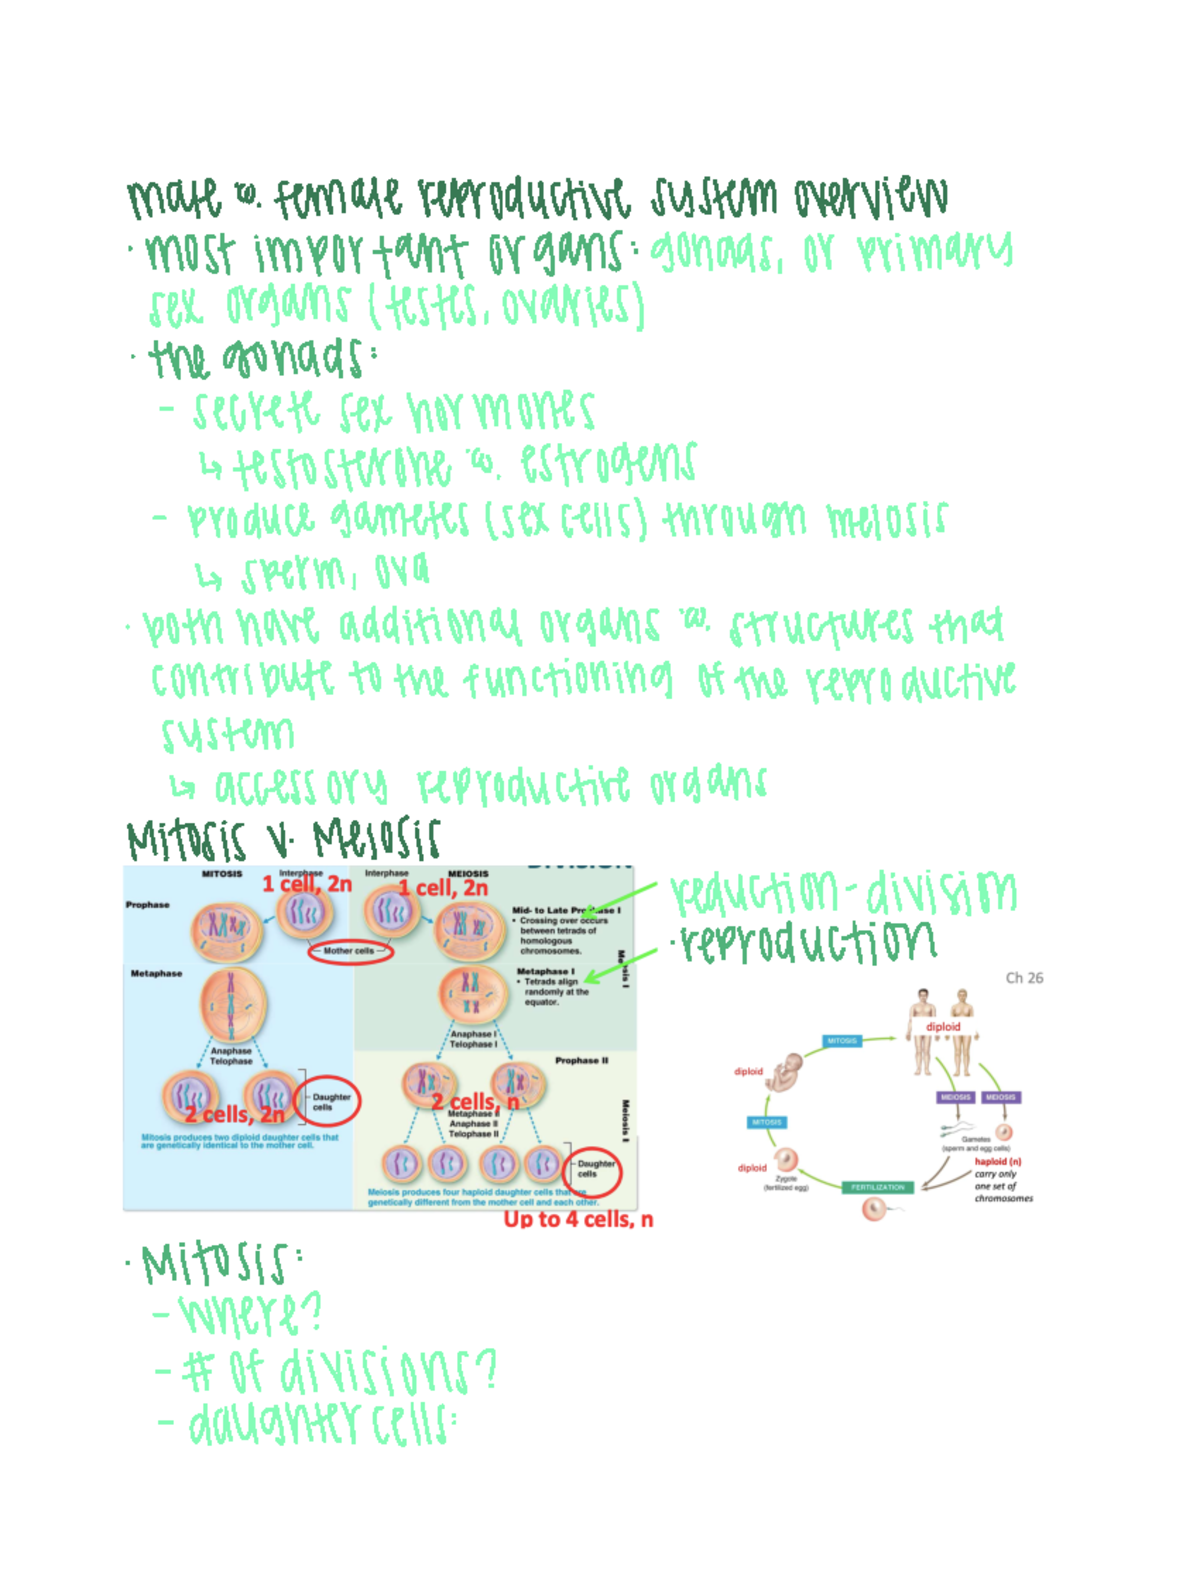 male &. female reproductive system overview
· most important organs: gonads, or primary
sex organs (testes, ovaries)
· the gonads:
- secrete sex hormones
↳ testosterone &. estrogens
- produce gametes (sex cells) through meiosis
↳ sperm, ova
· both have additional organs &. structures that
contribute to the functioning of the reproductive
system
↳ accessory reproductive organs
Mitosis v. Meiosis
DIVISION
MITOSIS
Interphase
Interphase
MEIOSIS
1 cell, 2n
1 cell, 2n
Prophase
Mid- to Late Prophase I
• Crossing over occurs
between tetrads of
homologous
chromosomes.
Mother cells
Meiosis I
Metaphase
Metaphase I
• Tetrads align
randomly at the
equator.
Anaphase
Telophase
Anaphase I
Telophase I
Prophase II
2 cells, 2n
Daughter
cells
2 cells, n
Metaphase II
Anaphase II
Telophase II
Meiosis I
Mitosis produces two diploid daughter cells that
are genetically identical to the mother cell.
Daughter
cells
Meiosis produces four haploid daughter cells that are
genetically different from the mother cell and each other.
Up to 4 cells, n
reduction-division
· reproduction
Ch 26
diploid
MITOSIS
diploid
MEIOSIS
MEIOSIS
MITOSIS
Gametes
(sperm and egg cells)
diploid
haploid (n)
carry only
one set of
chromosomes
Zygote
(fertilized egg)
FERTILIZATION
· Mitosis:
- where?
- # of divisions?
- daughter cells: